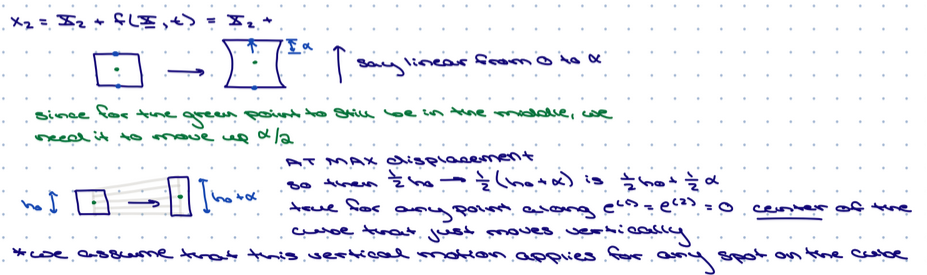 x₂ = X₂ + f(X, t) = X₂ +
α
say linear from 0 to α
since for the green point to still be in the middle, we
need it to move up α/2
AT MAX displacement
so then ½h₀ → ½(h₀+α) is ½h₀ + ½α
h₀
h₀+α
true for any point along e⁽¹⁾ = e⁽²⁾ = 0 center of the
cube that just moves vertically
*we assume that this vertical motion applies for any spot on the cube